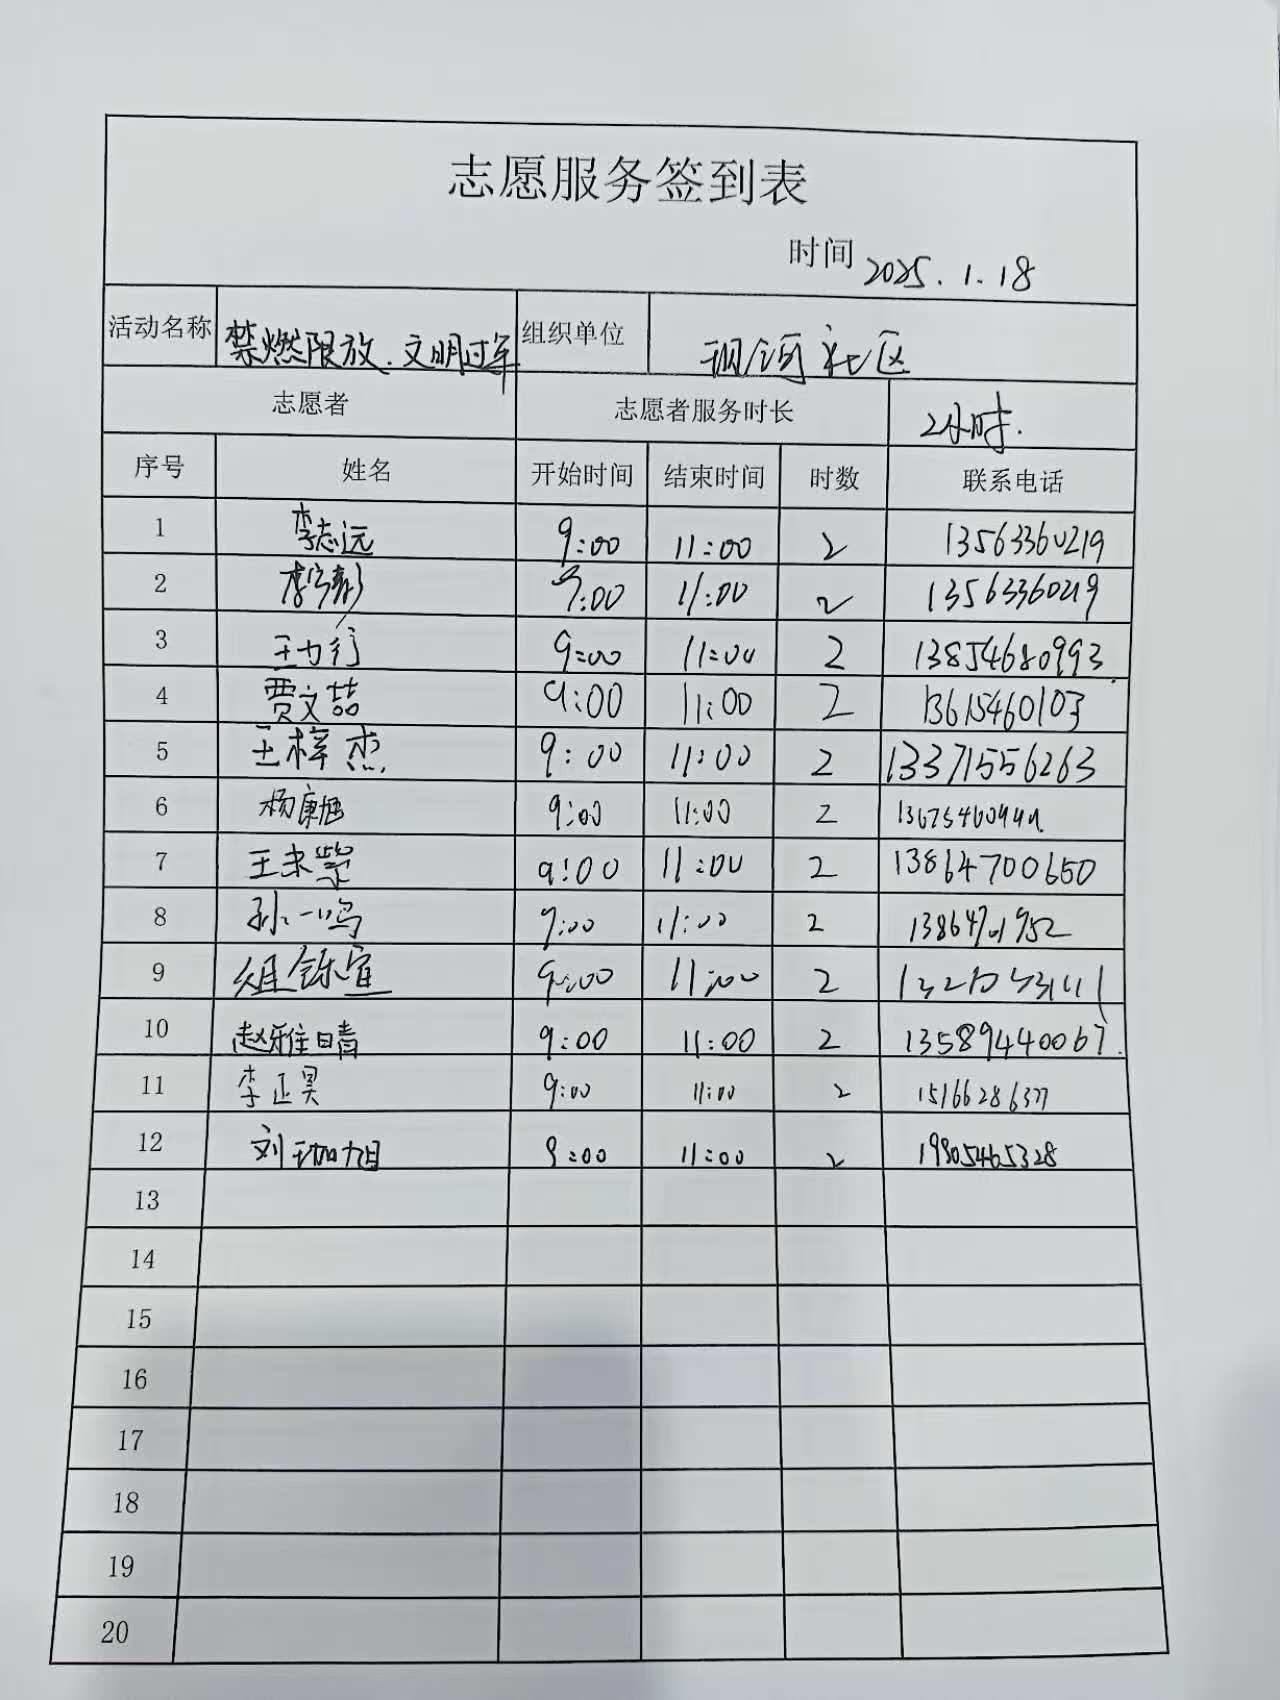 志愿服务签到表
时间 2025.1.18
活动名称 禁燃限放.文明过年 组织单位 社区
志愿者 志愿者服务时长 2小时.
序号 姓名 开始时间 结束时间 时数 联系电话
1 李志远 9:00 11:00 2 13563360219
2 9:00 11:00 2 13563360219
3 王力行 9:00 11:00 2 13854680993
4 贾文喆 9:00 11:00 2 13615460103
5 王梓杰 9:00 11:00 2 13371556263
6 杨康旭 9:00 11:00 2
7 王未 9:00 11:00 2 13864700650
8 孙一鸣 9:00 11:00 2
9 9:00 11:00 2
10 赵雅晴 9:00 11:00 2 13589440067.
11 李正昊 9:00 11:00 2
12 刘珈旭 9:00 11:00 2 19805465328
13
14
15
16
17
18
19
20